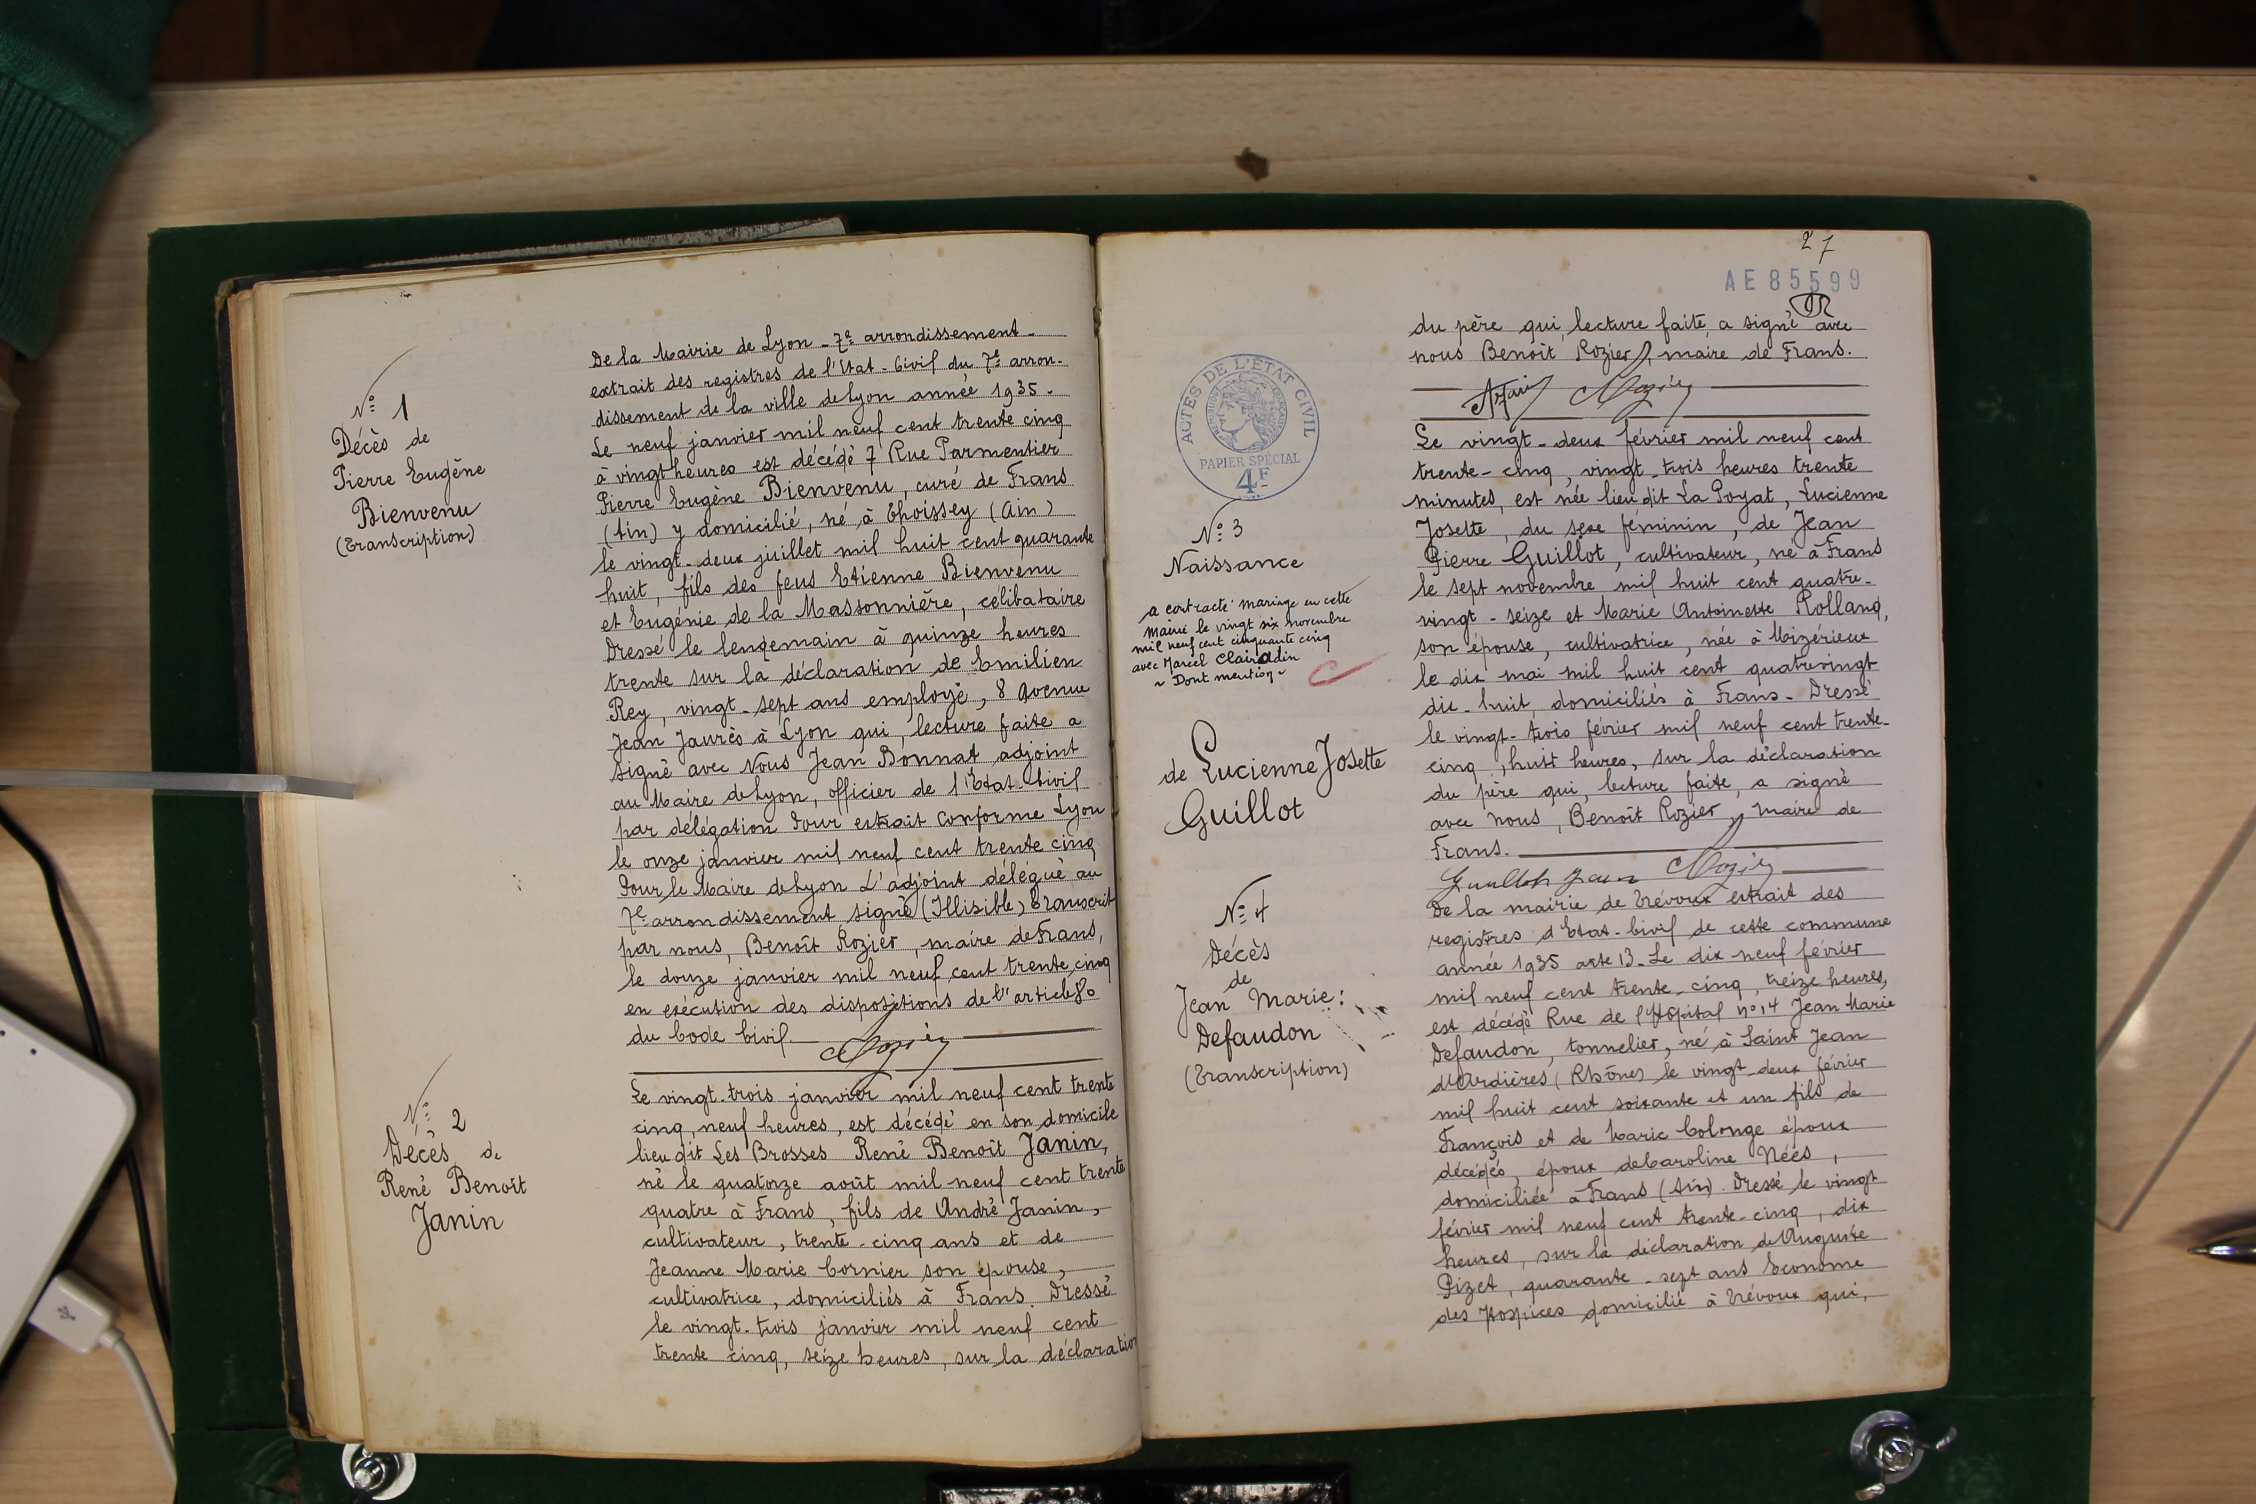 N° 1
Décès de
Pierre Eugène
Bienvenu
(Transcription)
De la Mairie de Lyon - 7e arrondissement -
extrait des registres de l'Etat-Civil du 7e arron-
dissement de la ville de Lyon année 1935.
Le neuf janvier mil neuf cent trente cinq
à vingt heures est décédé 7 Rue Parmentier
Pierre Eugène Bienvenu, curé de Frans
(Ain) y domicilié, né à Thoissey (Ain)
le vingt-deux juillet mil huit cent quarante
huit, fils des feus Etienne Bienvenu
et Eugénie de la Massonnière, célibataire
Dressé le lendemain à quinze heures
trente sur la déclaration de Emilien
Rey, vingt-sept ans employé, 8 Avenue
Jean Jaurès à Lyon qui, lecture faite a
signé avec Nous Jean Bonnat adjoint
au Maire de Lyon, officier de l'Etat-Civil
par délégation Pour extrait conforme Lyon
le onze janvier mil neuf cent trente cinq
Pour le Maire de Lyon L'adjoint délégué au
7e arrondissement signé (Illisible) Transcrit
par nous, Benoît Rozier, maire de Frans,
le douze janvier mil neuf cent trente cinq
en exécution des dispositions de l'article 80
du Code Civil.
Rozier
N° 2
Décès de
René Benoît
Janin
Le vingt-trois janvier mil neuf cent trente
cinq, neuf heures, est décédé en son domicile
lieu dit Les Brosses René Benoît Janin,
né le quatorze août mil neuf cent trente
quatre à Frans, fils de André Janin,
cultivateur, trente-cinq ans et de
Jeanne Marie Cornier son épouse,
cultivatrice, domiciliés à Frans. Dressé
le vingt-trois janvier mil neuf cent
trente cinq, seize heures, sur la déclaration
27
AE 85599
du père qui, lecture faite, a signé avec
nous Benoît Rozier, maire de Frans.
Rozier
ACTES DE L'ÉTAT CIVIL
PAPIER SPÉCIAL
4F
N° 3
Naissance
a contracté mariage en cette
mairie le vingt six novembre
mil neuf cent cinquante cinq
avec Marcel Clairadin
~ Dont mention ~
de Lucienne Josette
Guillot
Le vingt-deux février mil neuf cent
trente-cinq, vingt-trois heures trente
minutes, est née lieu dit La Poyat, Lucienne
Josette, du sexe féminin, de Jean
Pierre Guillot, cultivateur, né à Frans
le sept novembre mil huit cent quatre-
vingt-seize et Marie Antoinette Rolland,
son épouse, cultivatrice, née à Mizérieux
le dix mai mil huit cent quatrevingt
dix-huit, domiciliés à Frans. Dressé
le vingt-trois février mil neuf cent trente-
cinq, huit heures, sur la déclaration
du père qui, lecture faite, a signé
avec nous, Benoît Rozier, maire de
Frans.
Guillot Jean Rozier
N° 4
Décès
de
Jean Marie:
Defaudon
(Transcription)
De la mairie de Trévoux extrait des
registres d'Etat-Civil de cette commune
année 1935 acte 13. Le dix neuf février
mil neuf cent trente-cinq, treize heures,
est décédé Rue de l'Hôpital n° 14 Jean Marie
Defaudon, tonnelier, né à Saint Jean
d'Ardières (Rhône) le vingt-deux février
mil huit cent soixante et un fils de
François et de Marie Colonge époux
décédés, époux de Caroline Néés,
domiciliée à Frans (Ain). Dressé le vingt
février mil neuf cent trente-cinq, dix
heures, sur la déclaration de Auguste
Pizet, quarante-sept ans Econome
des Hospices domicilié à Trévoux qui,